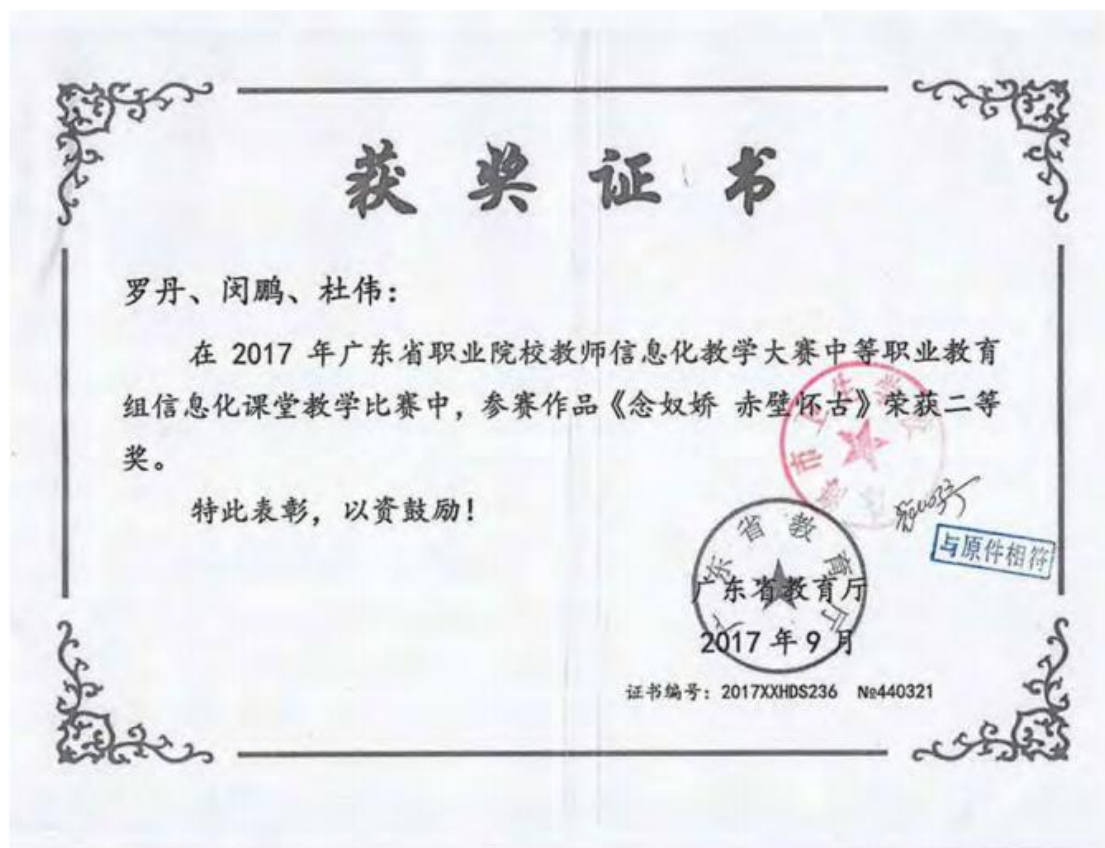 获奖证书
罗丹、闵鹏、杜伟：
在 2017 年广东省职业院校教师信息化教学大赛中等职业教育
组信息化课堂教学比赛中，参赛作品《念奴娇 赤壁怀古》荣获二等
奖。
特此表彰，以资鼓励！
广东省教育厅
与原件相符
广东省教育厅
2017 年 9 月
证书编号：2017XXHDS236 №440321